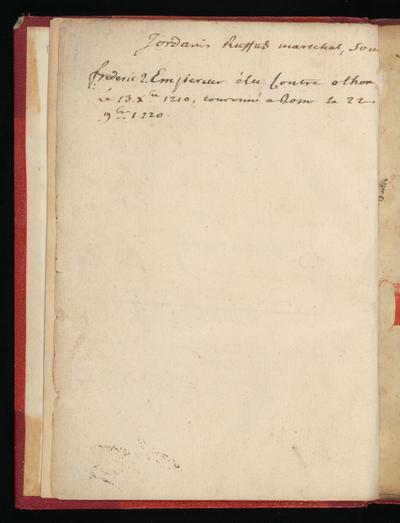 Jordanis Ruffus marechal, Sou
frederic 2. Empereur élu Contre othon
le 13 Xbre 1210, couronné a Rome le 22.
9bre 1220.